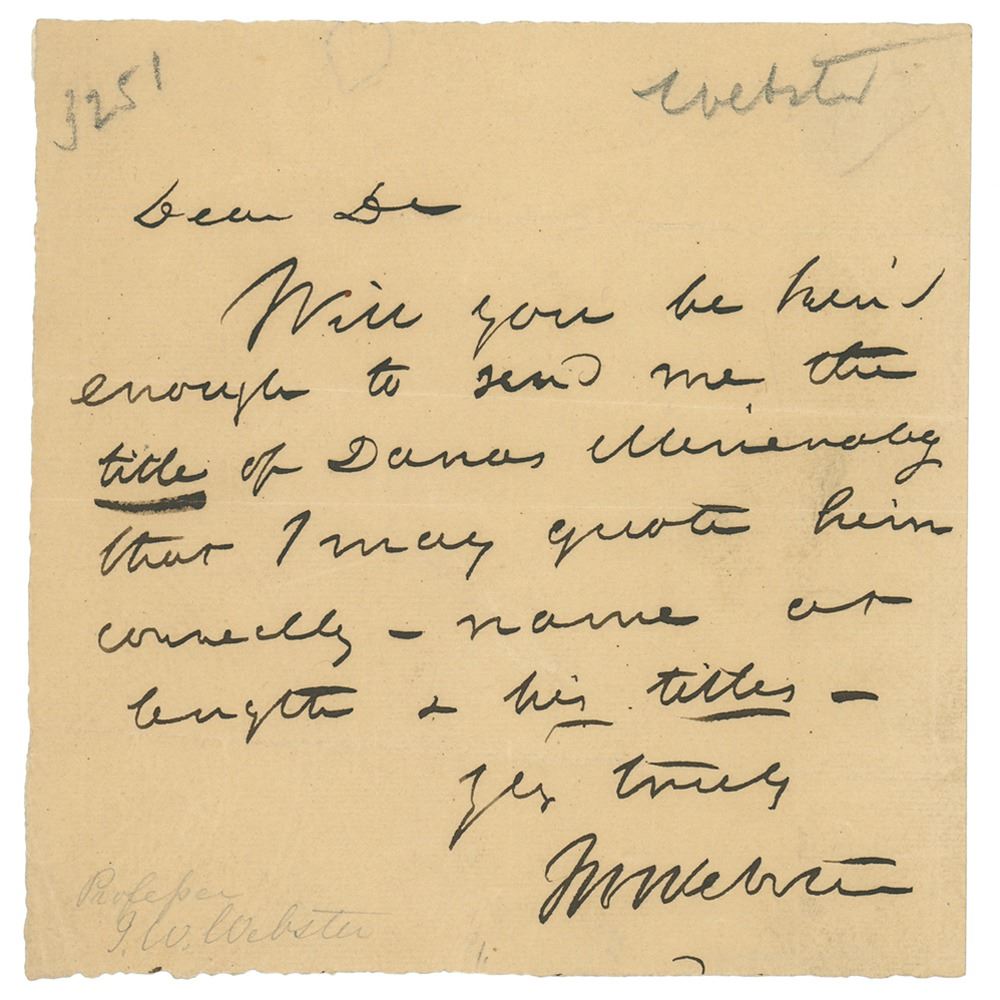 3251
Webster
Dear Dr
Will you be kind
enough to send me the
title of Danas Mineralogy
that I may quote him
correctly - name at
length & his titles -
Yrs truly
JWWebster
Professor
J. W. Webster